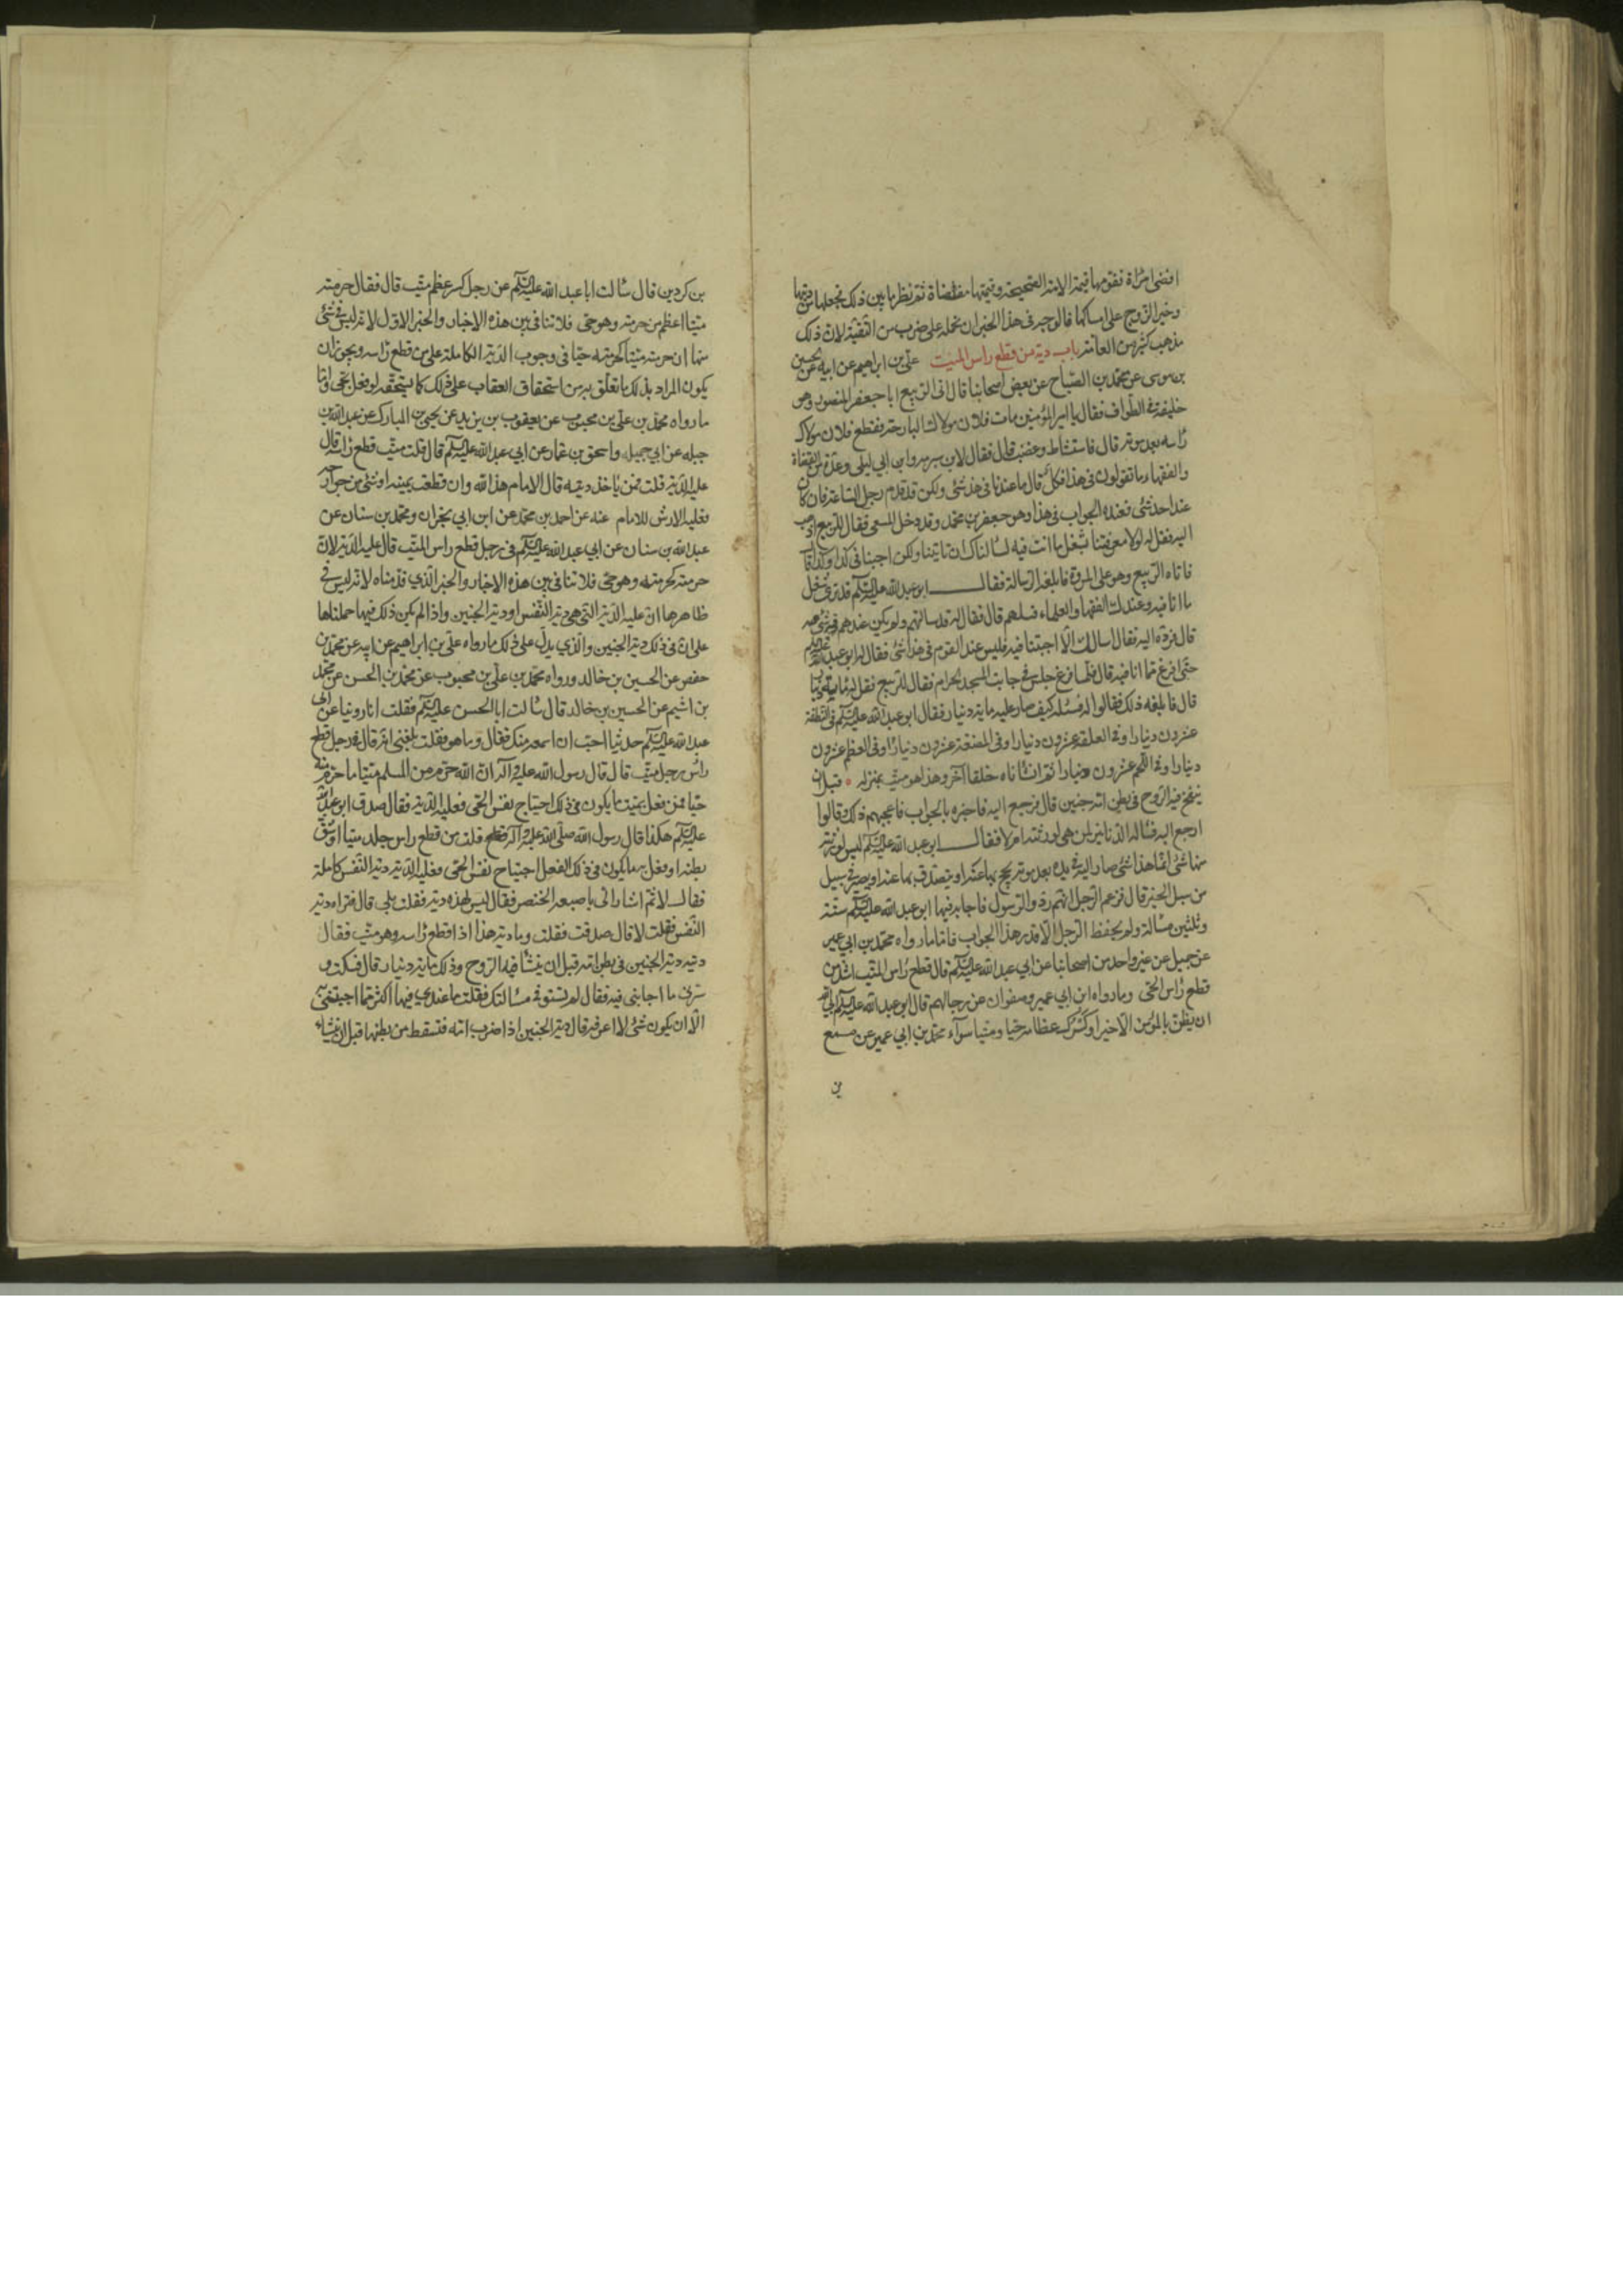 افضى امرأة فقومها قيمة الامة الصحيحة وقيمتها مفضاة ثم نظر ما بين ذلك فجعلها من ديتها
وخير الزوج على امساكها فالوجه في هذا الخبر ان نحمله على ضرب من التقية لان ذلك
مذهب كثير من العامة باب دية من قطع راس الميت علي بن ابراهيم عن ابيه عن الحسين
بن موسى عن محمد بن الصباح عن بعض اصحابنا قال اتى الربيع ابا جعفر المنصور وهو
خليفة في الطواف فقال يا امير المؤمنين مات فلان مولاك البارحة فقطع فلان مولاك
راسه بعد موته قال فاستشاط وغضب قال فقال لابن شبرمة وابن ابي ليلى وعدة من القضاة
والفقهاء ما تقولون في هذا فكل قال ما عندنا في هذا شئ ولكن قد قدم رجل الساعة فان كان
عند احد شئ فعنده الجواب في هذا وهو جعفر بن محمد وقد دخل المسعى فقال للربيع اذهب
اليه فقل له لولا معرفتنا بشغل ما انت فيه لسألناك ان تأتينا ولكن اجبنا في كذا وكذا قال
فاتاه الربيع وهو على المروة فابلغه الرسالة فقال ابو عبد الله عليه السلم قد ترى شغل
ما انا فيه وعندك الفقهاء والعلماء فسلهم قال فقال له قد سالتهم ولم يكن عندهم فيه شئ
قال فرده اليه فقال اسالك الا اجبتنا فيه فليس عند القوم في هذا شئ فقال له ابو عبد الله
حتى افرغ مما انا فيه قال فلما فرغ جلس في جانب المسجد الحرام فقال للربيع
قال فابلغه ذلك فقالوا له فسئله كيف صار عليه ماية دينار فقال ابو عبد الله عليه السلم في النطفة
عشرون دينارا وفي العلقة عشرون دينارا وفي المضغة عشرون دينارا وفي العظم عشرون
دينارا وفي اللحم عشرون دينارا ثم انشاناه خلقا آخر وهذا هو ميت بمنزله قبل ان
ينفخ فيه الروح في بطن امه جنين قال فرجع اليه فاخبره بالجواب فاعجبهم ذلك وقالوا
ارجع اليه فسئله الدنانير لمن هى لورثته ام لا فقال ابو عبد الله عليه السلم ليس لورثته
منها شئ انما هذا شئ صار اليه في بدنه بعد موته يحج بها عنه او يتصدق بها عنه او يصير في سبيل
من سبل الخير قال فزعم الرجل انهم ردوا الرسول فاجابه فيها ابو عبد الله عليه السلم ستة
وثلثين مسألة ولم يحفظ الرجل الا قدر هذا الجواب فاما ما رواه محمد بن ابي عمير
عن جميل عن غير واحد من اصحابنا عن ابي عبد الله عليه السلم قال قطع راس الميت اشد من
قطع راس الحى وما رواه ابن ابي عمير وصفوان عن رجالهم قال ابو عبد الله عليه السلم ابى الله
ان يظن بالمؤمن الا خيرا وكسرك عظامه حيا وميتا سوآء محمد بن ابي عمير عن مسمع
بن
بن كردين قال سالت ابا عبد الله عليه السلم عن رجل كسر عظم ميت قال فقال حرمته
ميتا اعظم من حرمته وهو حى فلا تنافي بين هذه الاخبار والخبر الاول لانه ليس في شئ
منها ان حرمته ميتا كحرمته حيا في وجوب الدية الكاملة على من قطع راسه ويجوز ان
يكون المراد بذلك ما تعلق به من استحقاق العقاب على ذلك كما يستحقه لو فعل بحى واما
ما رواه محمد بن علي بن محبوب عن يعقوب بن يزيد عن يحيى بن المبارك عن عبد الله بن
جبله عن ابي جميله واسحق بن عمار عن ابي عبد الله عليه السلم قال قلت ميت قطع راسه قال
عليه الدية قلت فمن ياخذ ديته قال الامام هذا لله وان قطعت يمينه او شئ من جوارحه
فعليه الارش للامام عنه عن احمد بن محمد عن ابن ابي نجران ومحمد بن سنان عن
عبد الله بن سنان عن ابي عبد الله عليه السلم في رجل قطع راس الميت قال عليه الدية لان
حرمته كحرمته وهو حى فلا تنافي بين هذه الاخبار والخبر الذي قدمناه لانه ليس في
ظاهرها ان عليه الدية التى هى دية النفس او دية الجنين واذا لم يكن ذلك فيها حملناها
على ان في ذلك دية الجنين والذي يدل على ذلك ما رواه علي بن ابراهيم عن ابيه عن محمد بن
حفص عن الحسين بن خالد ورواه محمد بن علي بن محبوب عن محمد بن الحسن عن محمد
بن اشيم عن الحسين بن خالد قال سالت ابا الحسن عليه السلم فقلت انا روينا عن ابي
عبد الله عليه السلم حديثا احب ان اسمعه منك فقال وما هو فقلت بلغني انه قال في رجل قطع
راس رجل ميت قال قال رسول الله عليه وآله ان الله حرم من المسلم ميتا ما حرم منه
حيا فمن فعل بميت ما يكون في ذلك اجتياح نفس الحى فعليه الدية فقال صدق ابو عبد الله
عليه السلم هكذا قال رسول الله صلى الله عليه وآله قلت من قطع راس رجل ميتا او شق
بطنه او فعل به ما يكون في ذلك الفعل اجتياح نفس الحى فعليه الدية دية النفس كاملة
فقال لا ثم اشار الى باصبعه الخنصر فقال اليس لهذه دية فقلت بلى قال فتراه دية
النفس فقلت لا قال صدقت فقلت وما دية هذا اذا قطع راسه وهو ميت فقال
ديته دية الجنين في بطن امه قبل ان ينشأ فيه الروح وذلك ماية دينار قال فسكت و
سرني ما اجابني فيه فقال لم لا تستوف مسالتك فقلت ما عندي فيها اكثر مما اجبتني به
الا ان يكون شئ لا اعرفه قال دية الجنين اذا ضرب امه فتسقط من بطنها قبل ان ينشاء